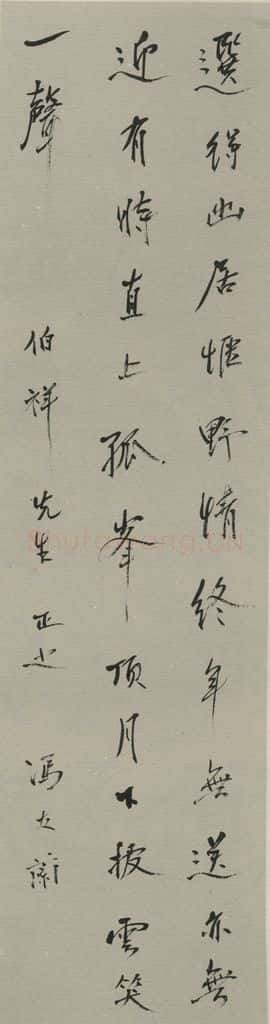 選得幽居愜野情終年無送亦無
迎有時直上孤峯頂月下披雲笑
一聲
伯祥先生正之 馮